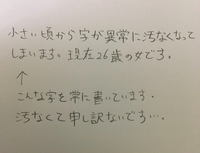 小さい頃から字が異常に汚なくなって
しまいます。現在26歳の女です。
↑
こんな字を常に書いています。
汚なくて申し訳ないです…。